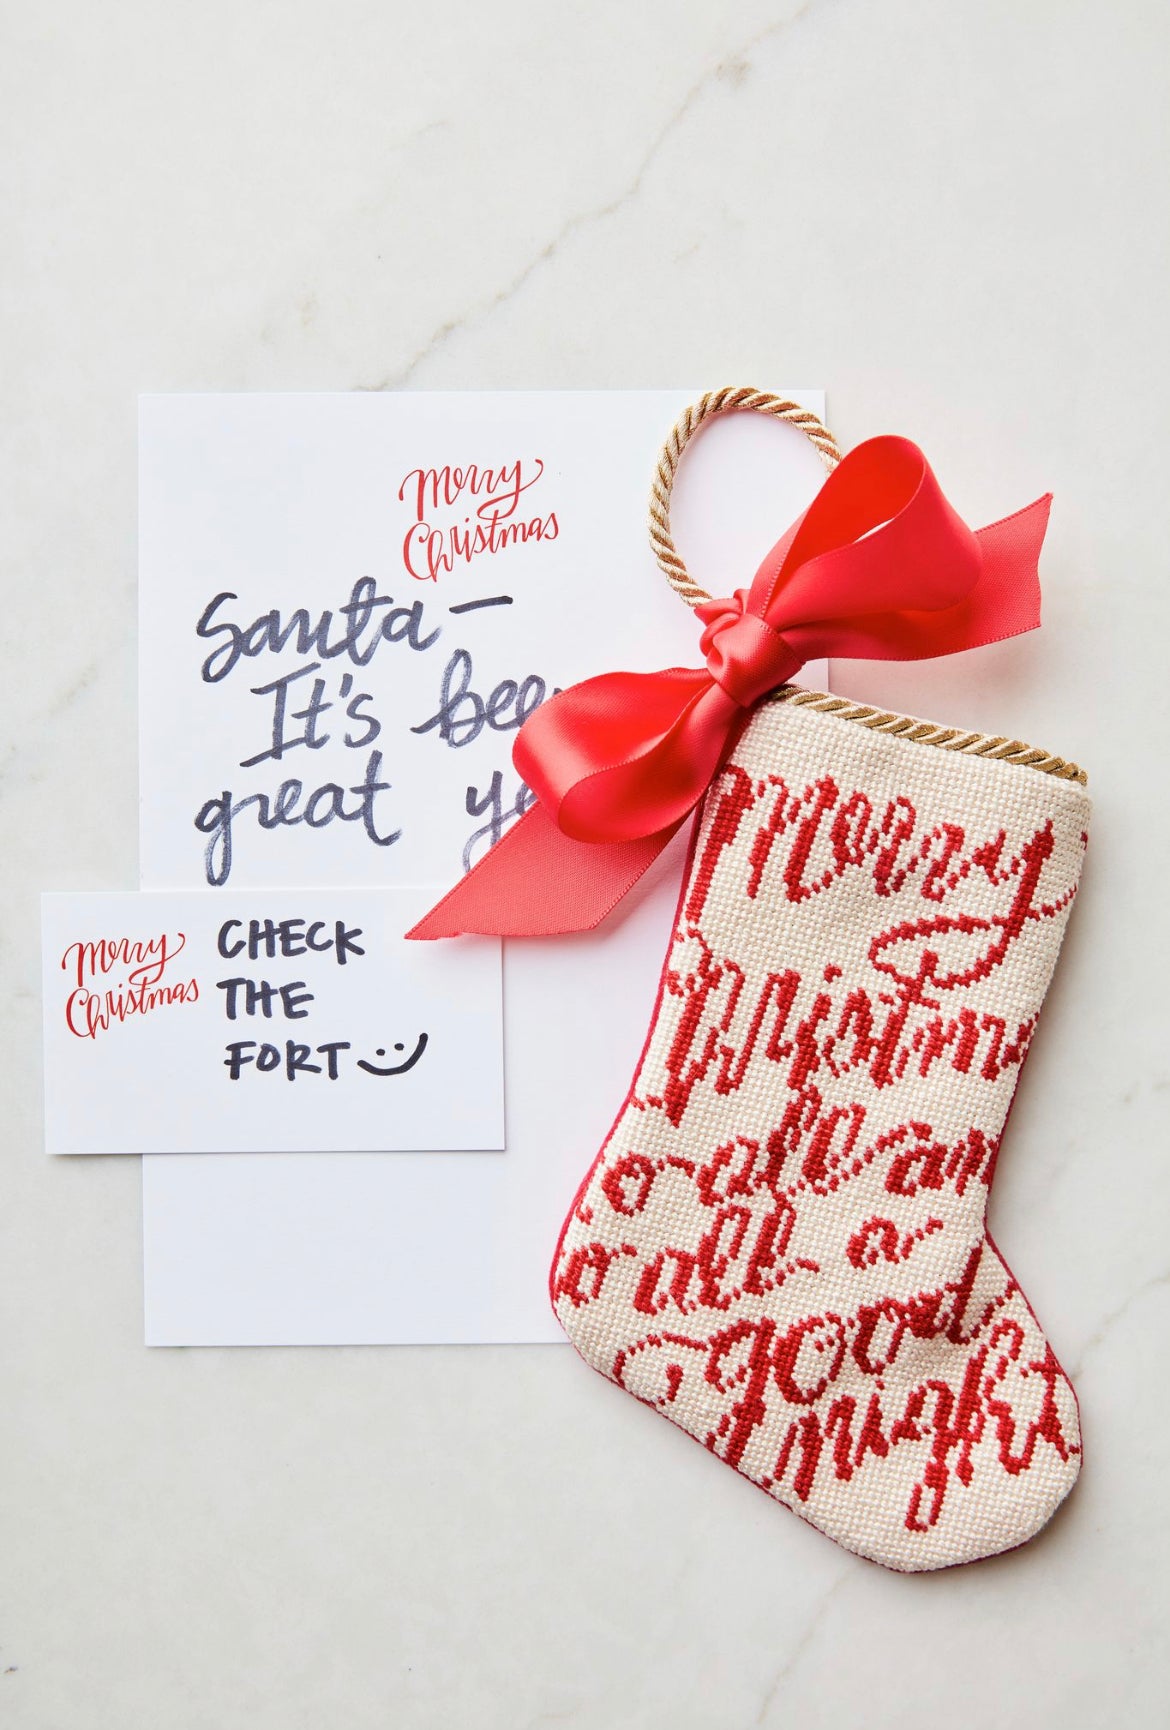 Merry
Christmas
Santa—
It's
great
Merry
Christmas
CHECK
THE
FORT
Merry
Christmas
to all and
to all a
good
night